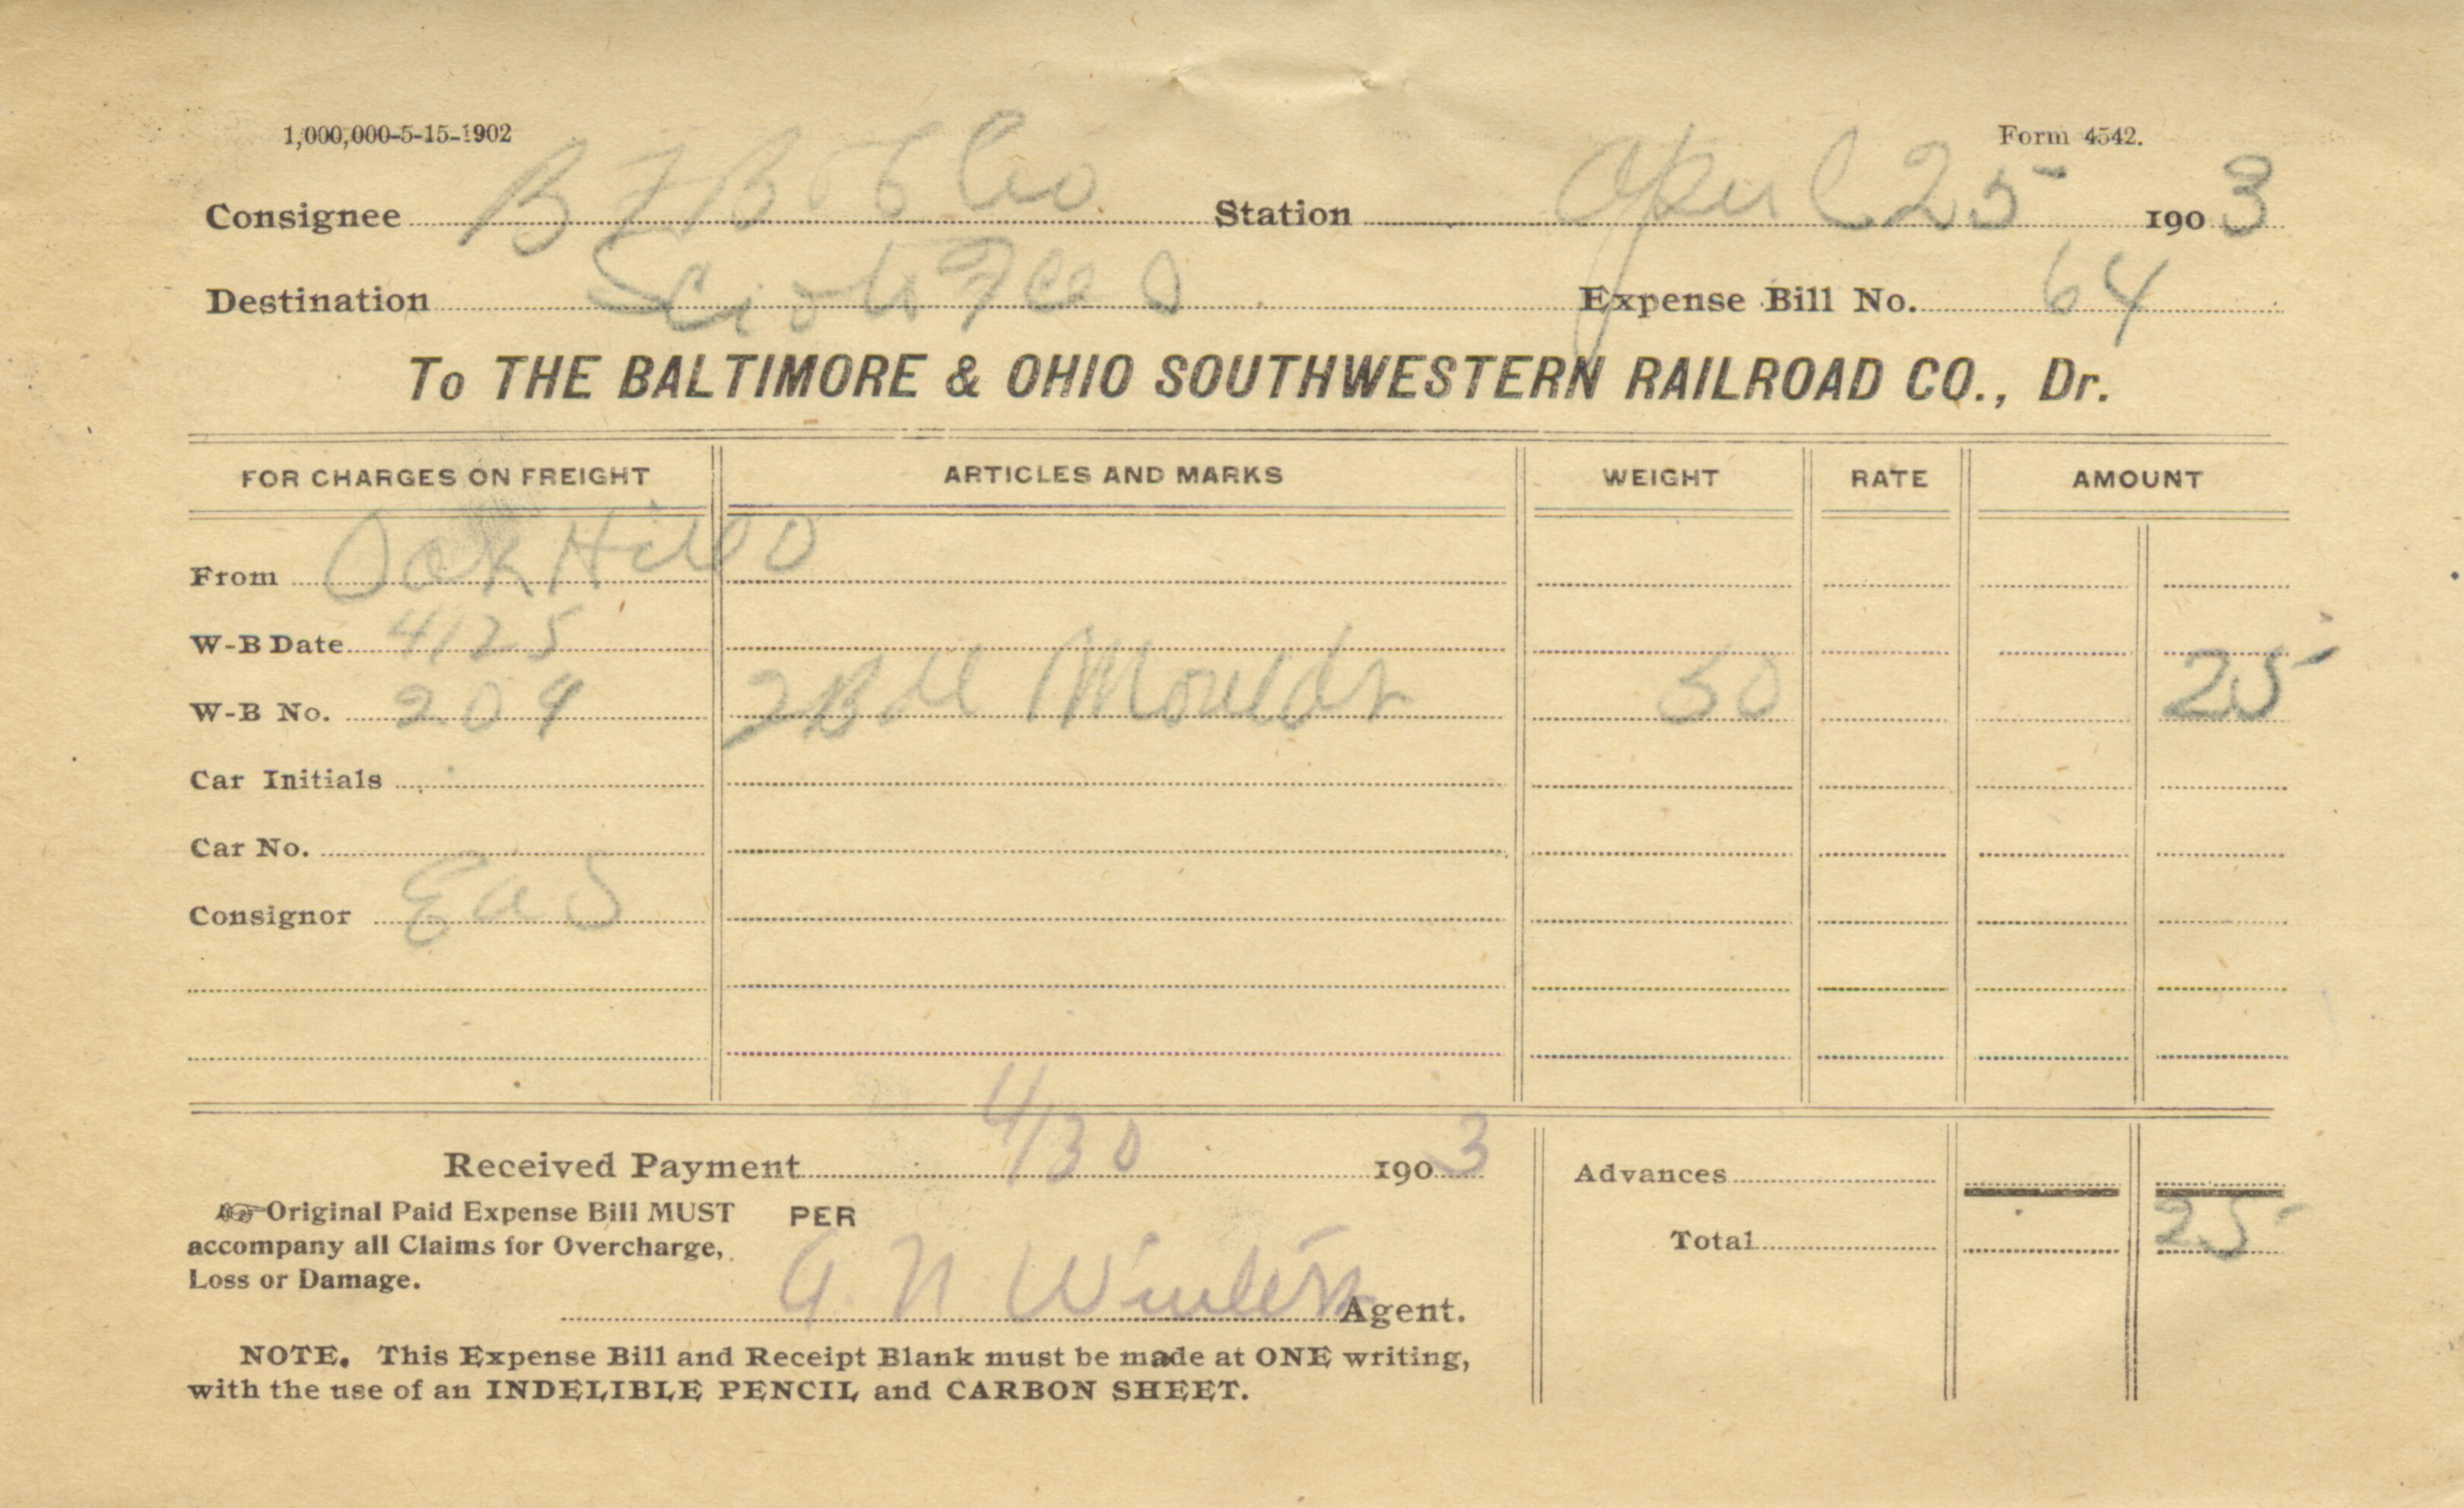 1,000,000-5-15-1902 Form 4542.
Consignee B F B Co Station April 25 1903
Destination Scioto Fce O Expense Bill No. 64
To THE BALTIMORE & OHIO SOUTHWESTERN RAILROAD CO., Dr.
FOR CHARGES ON FREIGHT ARTICLES AND MARKS WEIGHT RATE AMOUNT
From Oak Hill O
W-B Date 4/25
W-B No. 209 2 Bdl Moulds 50 25
Car Initials
Car No.
Consignor
Received Payment 4/30 1903 Advances
☞Original Paid Expense Bill MUST PER
accompany all Claims for Overcharge, Total 25
Loss or Damage.
G. N. Agent.
NOTE. This Expense Bill and Receipt Blank must be made at ONE writing,
with the use of an INDELIBLE PENCIL and CARBON SHEET.